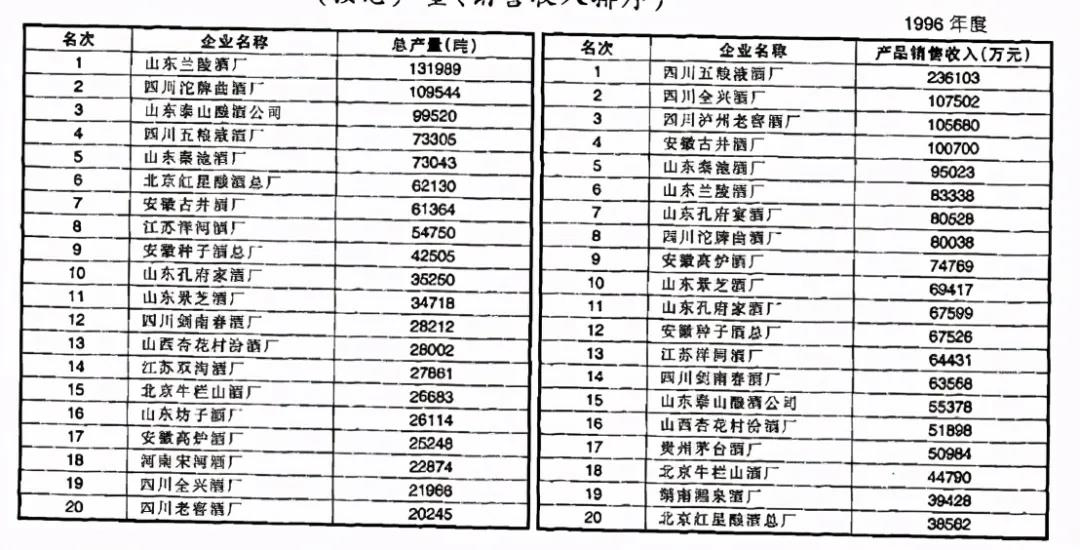 1996年度
名次 企业名称 总产量(吨)
1 山东兰陵酒厂 131989
2 四川沱牌曲酒厂 109544
3 山东泰山酿酒公司 99520
4 四川五粮液酒厂 73305
5 山东秦池酒厂 73043
6 北京红星酿酒总厂 62130
7 安徽古井酒厂 61364
8 江苏洋河酒厂 54750
9 安徽种子酒总厂 42505
10 山东孔府家酒厂 35250
11 山东景芝酒厂 34718
12 四川剑南春酒厂 28212
13 山西杏花村汾酒厂 28002
14 江苏双沟酒厂 27861
15 北京牛栏山酒厂 26683
16 山东坊子酒厂 26114
17 安徽高炉酒厂 25248
18 河南宋河酒厂 22874
19 四川全兴酒厂 21966
20 四川老窖酒厂 20245
名次 企业名称 产品销售收入(万元)
1 四川五粮液酒厂 236103
2 四川全兴酒厂 107502
3 四川泸州老窖酒厂 105680
4 安徽古井酒厂 100700
5 山东秦池酒厂 95023
6 山东兰陵酒厂 83338
7 山东孔府宴酒厂 80528
8 四川沱牌曲酒厂 80038
9 安徽高炉酒厂 74769
10 山东景芝酒厂 69417
11 山东孔府家酒厂 67599
12 安徽种子酒总厂 67526
13 江苏洋河酒厂 64431
14 四川剑南春酒厂 63568
15 山东泰山酿酒公司 55378
16 山西杏花村汾酒厂 51898
17 贵州茅台酒厂 50984
18 北京牛栏山酒厂 44790
19 湘泉酒厂 39428
20 北京红星酿酒总厂 38562